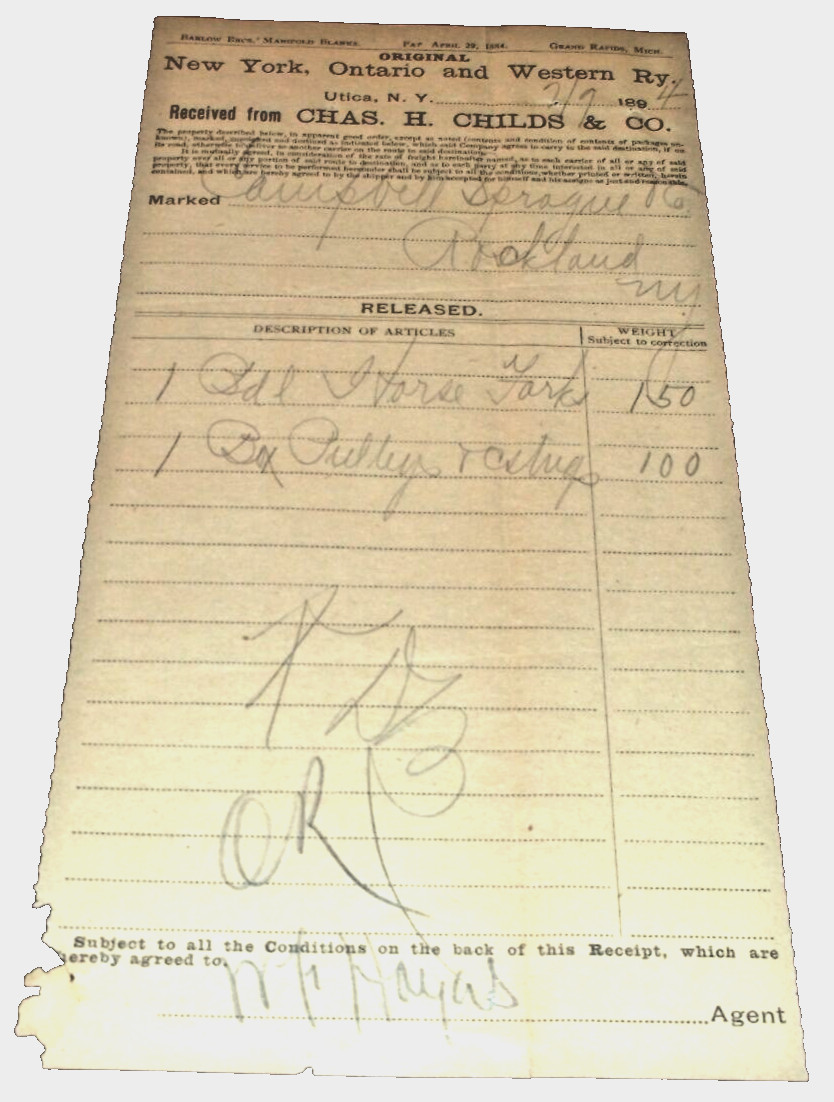 BARLOW BROS.' MANIFOLD BLANKS. PAT APRIL 29, 1884. GRAND RAPIDS, MICH.
ORIGINAL
New York, Ontario and Western Ry.
Utica, N. Y. 7/9 1894
Received from CHAS. H. CHILDS & CO.
The property described below, in apparent good order, except as noted (contents and condition of contents of packages un-
known), marked, consigned and destined as indicated below, which said Company agrees to carry to the said destination, if on
its road, otherwise to deliver to another carrier on the route to said destination.
It is mutually agreed, in consideration of the rate of freight hereinafter named, as to each carrier of all or any of said
property over all or any portion of said route to destination, and as to each party at any time interested in all or any of said
property, that every service to be performed hereunder shall be subject to all the conditions, whether printed or written, herein
contained, and which are hereby agreed to by the shipper and by him accepted for himself and his assigns as just and reasonable.
Marked Campbell Sprague Co.
Rockland
NY
RELEASED.
DESCRIPTION OF ARTICLES WEIGHT
Subject to correction
1 Bdl Horse Forks 150
1 Box Pulleys & Cstngs 100
OR
Subject to all the Conditions on the back of this Receipt, which are
hereby agreed to.
Agent